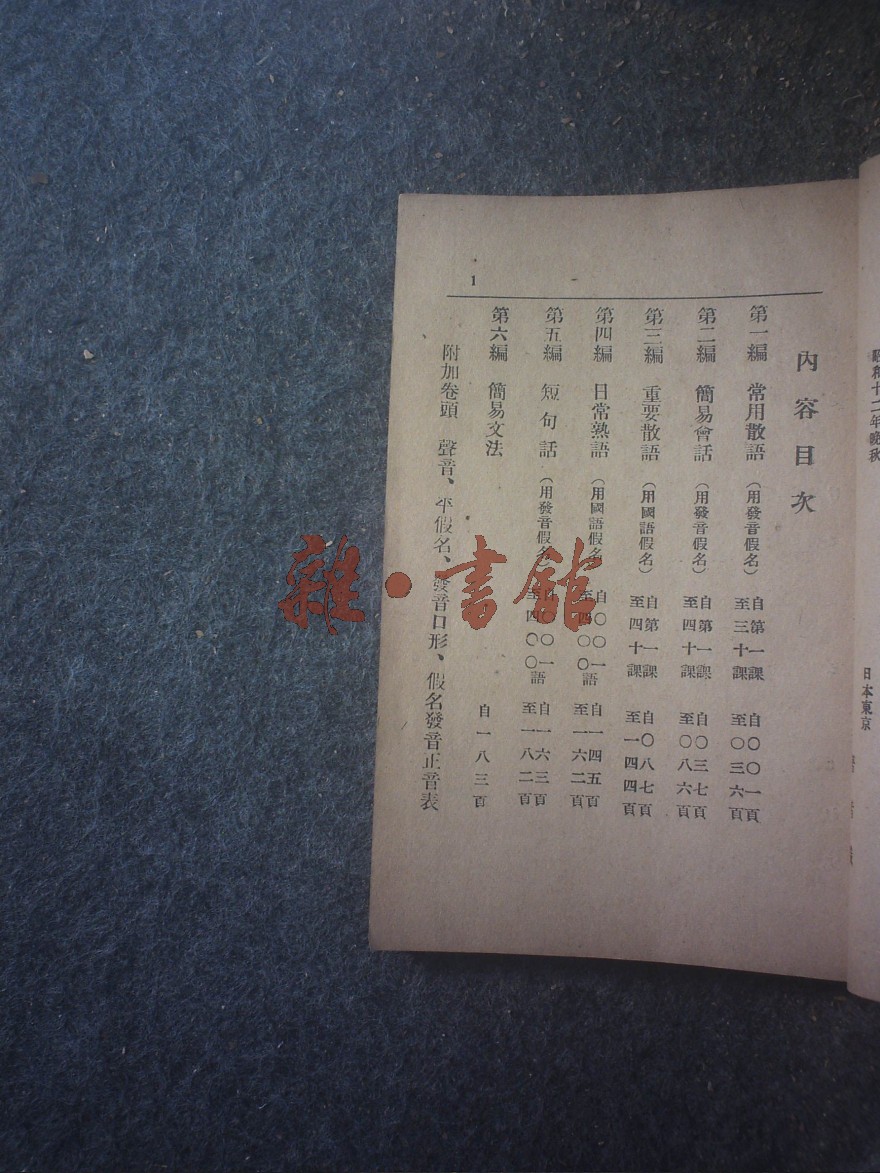 昭和十二年晩秋
日本東京
1
內容目次
第一編 常用散語 (用發音假名) 自第一課 至三十課 自〇〇一頁 至〇三六頁
第二編 簡易會話 (用發音假名) 自第一課 至四十課 自〇三七頁 至〇八六頁
第三編 重要散語 (用國語假名) 自第一課 至四十課 自〇八七頁 至一四四頁
第四編 日常熟語 (用國語假名) 自〇〇一語 至四〇〇 自一四五頁 至一六二頁
第五編 短句話 (用發音假名) 自〇〇一語 至四〇〇 自一六三頁 至一八二頁
第六編 簡易文法 自一八三頁
附加卷頭 聲音、平假名、發音口形、假名發音正音表
雜·書館